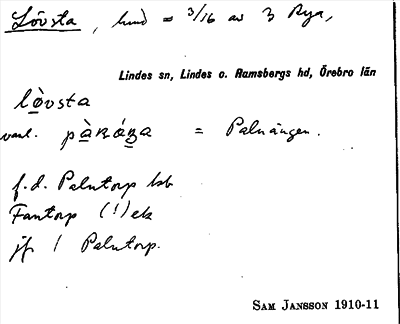 Lövsta, hmd = 3/16 av 3 Rya,
Lindes sn, Lindes o. Ramsbergs hd, Örebro län
lòvsta
vanl. = Palnängen.
f.d. Palntorp
Fantorp (!) ek
jfr Palntorp.
SAM JANSSON 1910-11